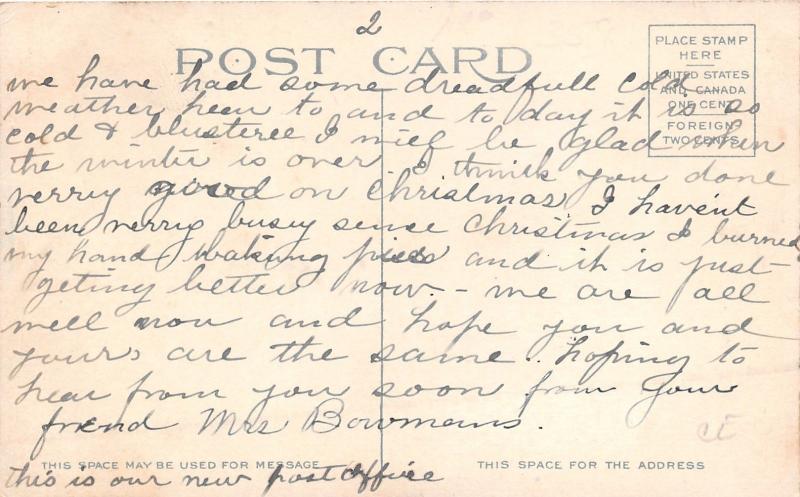 2
POST CARD
PLACE STAMP
HERE
UNITED STATES
AND CANADA
ONE CENT
FOREIGN
TWO CENTS
we have had some dreadfull cold
weather hear to and to day it is so
cold & blusteree I will be glad when
the winter is over I think you done
verry good on Christmas I havent
been verry busy sence Christmas I burned
my hand baking pies and it is just
geting better now - we are all
well now and hope you and
yours are the same .. hoping to
hear from you soon from your
friend Mrs Bowmans.
CE
THIS SPACE MAY BE USED FOR MESSAGE
THIS SPACE FOR THE ADDRESS
this is our new post office